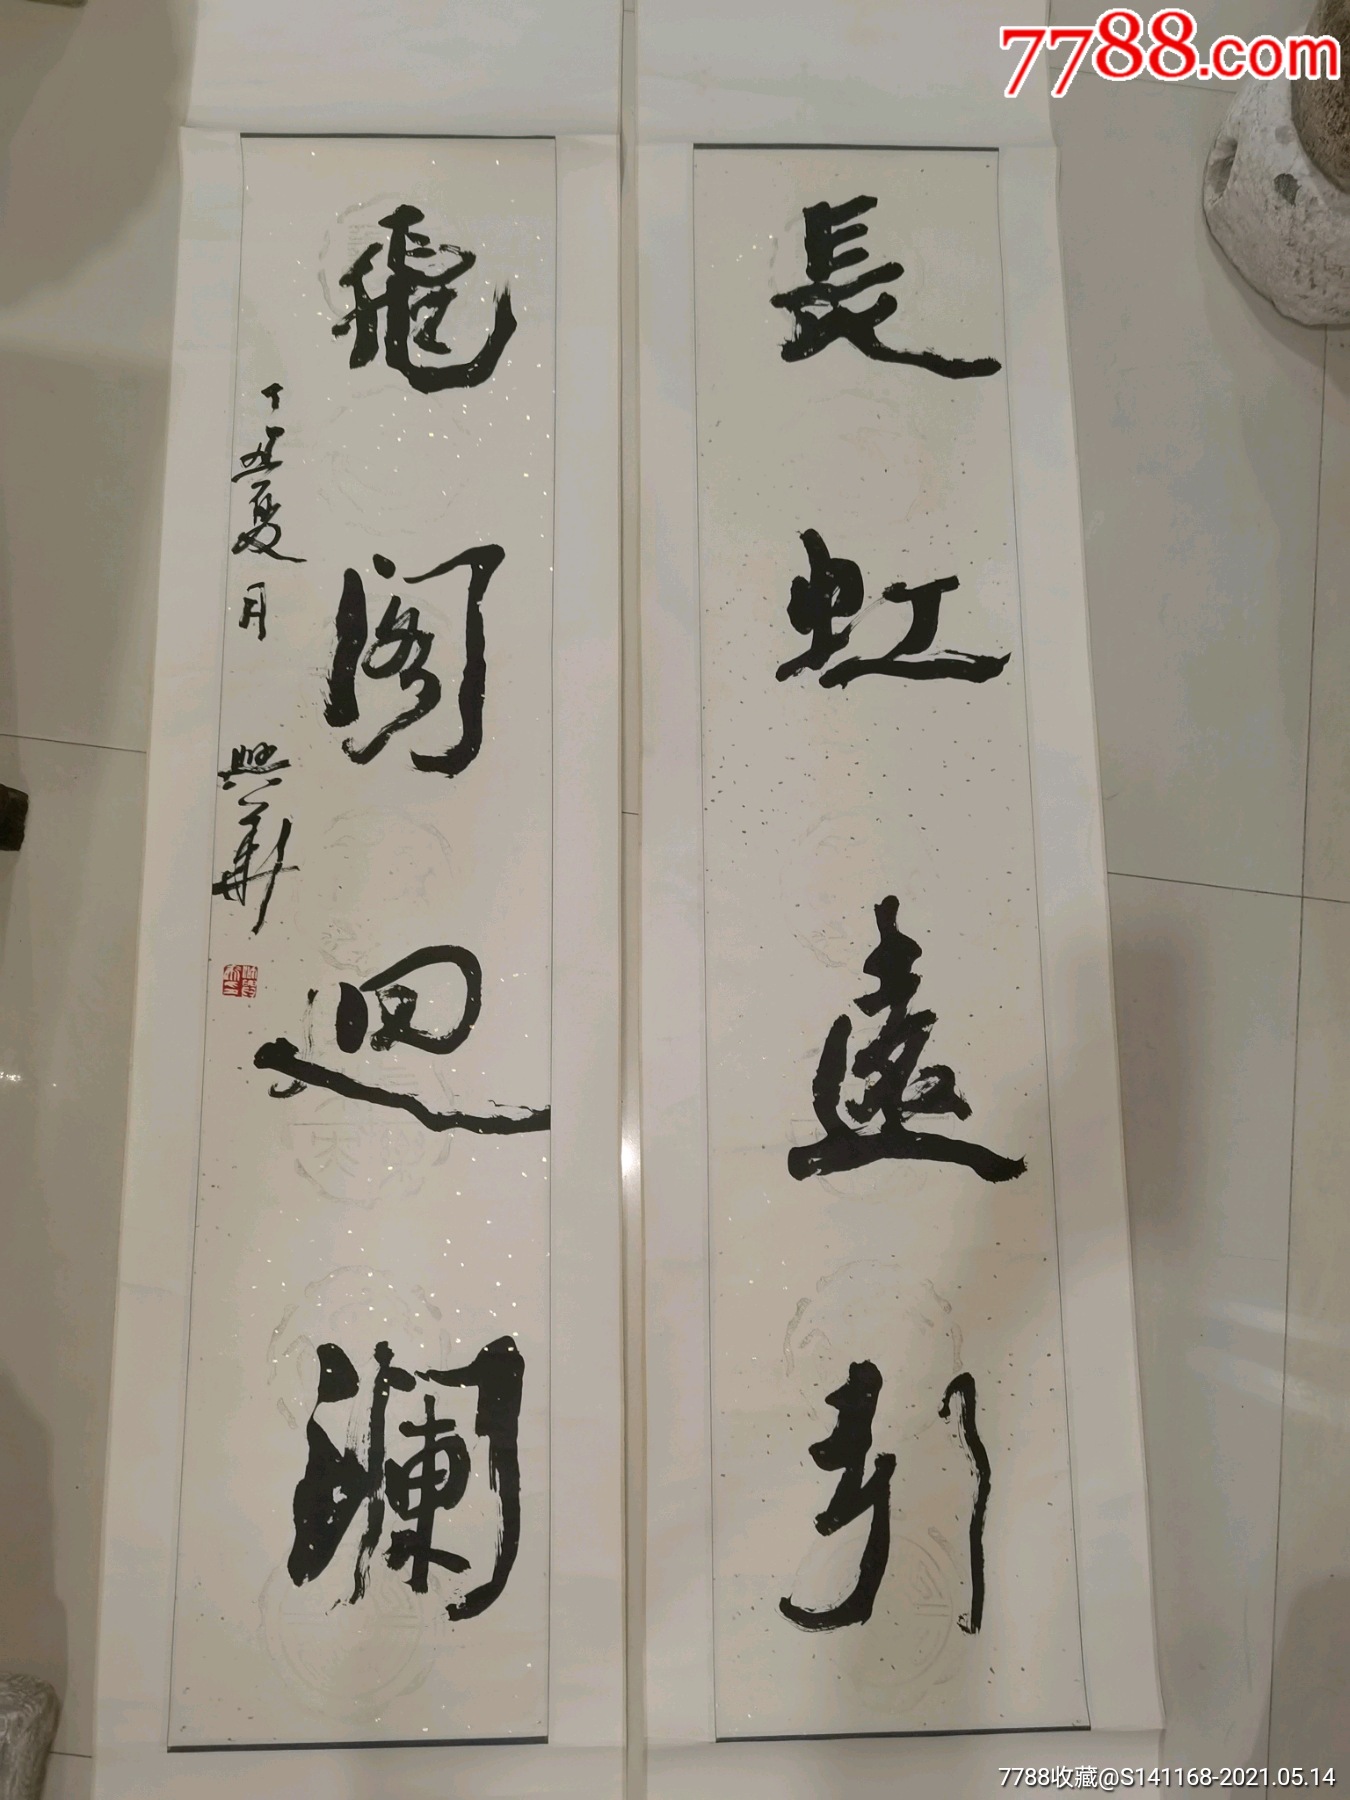 7788.com
長虹遠引
飛阁迴瀾
丁丑夏月
興華
7788收藏@S141168-2021.05.14